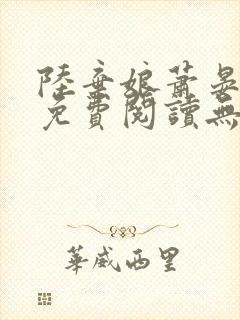 陸棄娘蕭晏
免費閱讀無
華威西里